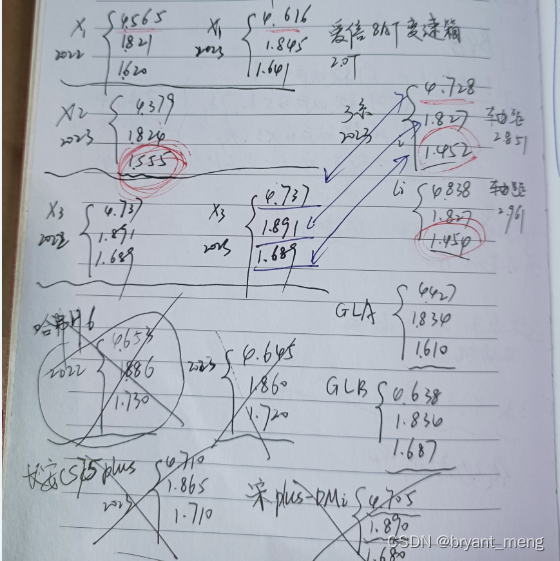 X1 2022 4565 1821 1620
X1 2023 4.616 1.845 1.641
爱信8AT变速箱
2.0T
X2 2023 4379 1824 1555
3系 2023 4.728 1.827 1.452
轴距 2.851
Li 4.838 1.827 1.454
轴距 2.961
X3 2022 4.737 1.891 1.689
X3 2023 4.737 1.891 1.689
GLA 4427 1.834 1.610
哈弗H6 2022 4.653 1.886 1.730
2023 4.645 1.860 1.720
GLB 4.638 1.834 1.687
长安CS75plus 2023 4.710 1.865 1.710
宋plus-DMi 4.705 1.890 1.680
CSDN @bryant_meng